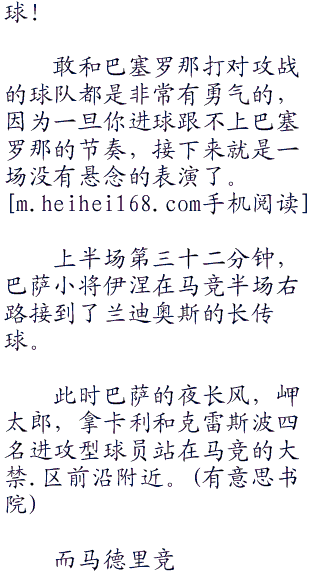 球！
敢和巴塞罗那打对攻战
的球队都是非常有勇气的，
因为一旦你进球跟不上巴塞
罗那的节奏，接下来就是一
场没有悬念的表演了。
[m.heihei168.com手机阅读]
上半场第三十二分钟，
巴萨小将伊涅在马竞半场右
路接到了兰迪奥斯的长传
球。
此时巴萨的夜长风，岬
太郎，拿卡利和克雷斯波四
名进攻型球员站在马竞的大
禁.区前沿附近。(有意思书
院)
而马德里竞